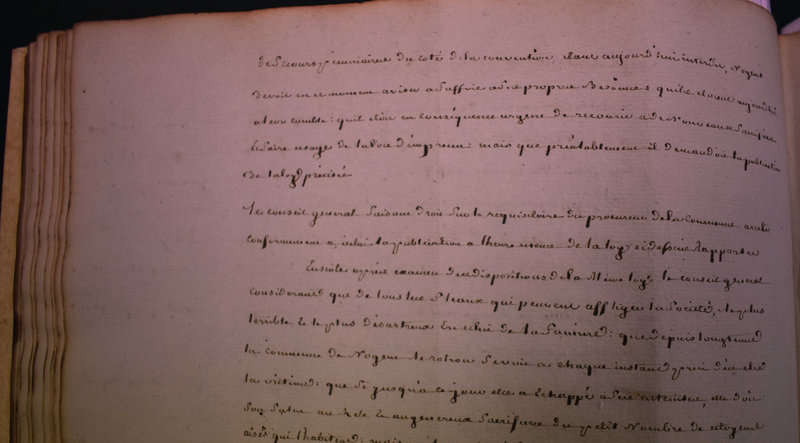 des secours pécuniaires du coté de la convention, etant aujourd'hui interdit, Nogent
devoit en ce moment aviser a suffire a ses propres Besoins qui etoient aujourd'hui
a leur comble: qu'il etoit en conséquence urgent de recourir a de Nouveaux Sacrifices
et faire usage de la voie d'emprunt: mais que préalablement il demandoit la publication
de la loy précisée
Le conseil general faisant droit sur le requisitoire du procureur de la commune arrete
conformement a icelui la publication a l'heure meme de la loy ci dessus Rapportée
Ensuite après examen des dispositions de la Même loy, le conseil general
considerant que de tous les fleaux qui peuvent affliger la Société, le plus
terrible et le plus désastreux est celui de la famine: que depuis longtems
la commune de Nogent le rotrou se voit a chaque instant près d'en etre
la victime: que si jusqu'a ce jour elle a Echappé a ses atteintes, elle doit
Son Salut au zele et aux genereux Sacrifices du petit Nombre de citoyens
aisés qui l'habitent: